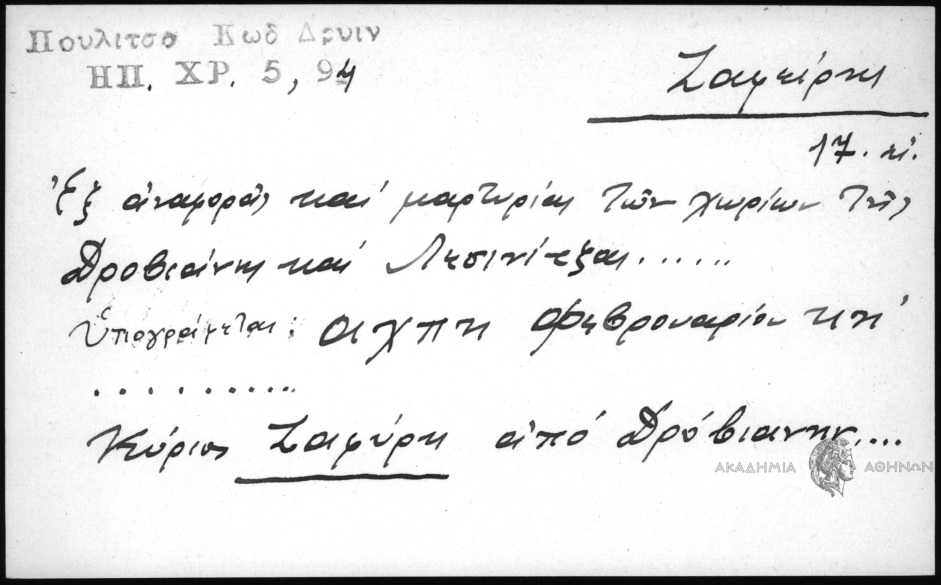 Πουλιτσα Κωδ Δρυιν
ΗΠ. ΧΡ. 5, 94
Ζαφείρης
17. αἰ.
Ἐξ ἀναφορᾶς καί μαρτυρίας τῶν χωρίων τῆς
Δροβιάνης καί Λεσινίτζας......
ὑπογράφεται: αχπη Φεβρουαρίου κη'
..........
Κύριος Ζαφύρη ἀπό Δρόβιανην....
ΑΚΑΔΗΜΙΑ ΑΘΗΝΩΝ